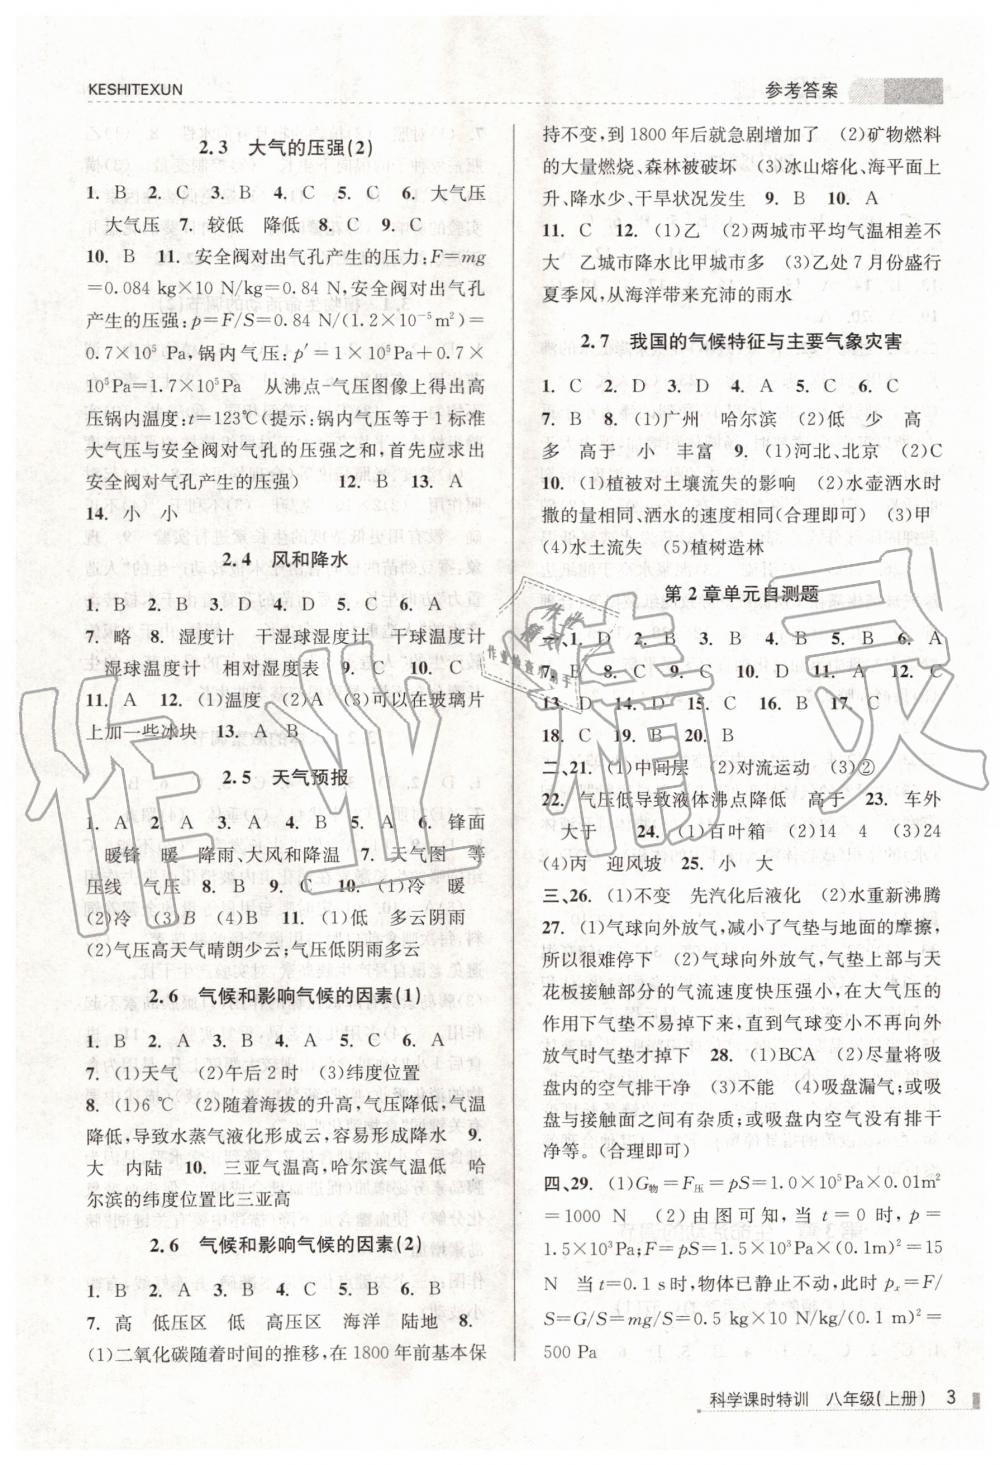 KESHITEXUN
参考答案
2.3 大气的压强(2)
1. B 2. C 3. B 4. C 5. C 6. 大气压
大气压 7. 较低 降低 8. C 9. C
10. B 11. 安全阀对出气孔产生的压力:F=mg
=0.084 kg×10 N/kg=0.84 N,安全阀对出气孔
产生的压强:p=F/S=0.84 N/(1.2×10⁻⁵m²)=
0.7×10⁵ Pa,锅内气压:p′=1×10⁵Pa+0.7×
10⁵Pa=1.7×10⁵Pa 从沸点-气压图像上得出高
压锅内温度:t=123℃(提示:锅内气压等于1标准
大气压与安全阀对气孔的压强之和,首先应求出
安全阀对气孔产生的压强) 12. B 13. A
14. 小 小
2.4 风和降水
1. B 2. B 3. D 4. D 5. A 6. B
7. 略 8. 湿度计 干湿球湿度计 干球温度计
湿球温度计 相对湿度表 9. C 10. C
11. A 12. (1)温度 (2)A (3)可以在玻璃片
上加一些冰块 13. A B
2.5 天气预报
1. A 2. A 3. A 4. B 5. A 6. 锋面
暖锋 暖 降雨、大风和降温 7. 天气图 等
压线 气压 8. B 9. C 10. (1)冷 暖
(2)冷 (3)B (4)B 11. (1)低 多云阴雨
(2)气压高天气晴朗少云;气压低阴雨多云
2.6 气候和影响气候的因素(1)
1. C 2. B 3. C 4. B 5. C 6. A
7. (1)天气 (2)午后2时 (3)纬度位置
8. (1)6℃ (2)随着海拔的升高,气压降低,气温
降低,导致水蒸气液化形成云,容易形成降水 9.
大 内陆 10. 三亚气温高,哈尔滨气温低 哈
尔滨的纬度位置比三亚高
2.6 气候和影响气候的因素(2)
1. B 2. A 3. C 4. A 5. C 6. B
7. 高 低压区 低 高压区 海洋 陆地 8.
(1)二氧化碳随着时间的推移,在1800年前基本保
持不变,到1800年后就急剧增加了 (2)矿物燃料
的大量燃烧、森林被破坏 (3)冰山熔化、海平面上
升、降水少、干旱状况发生 9. B 10. A
11. C 12. (1)乙 (2)两城市平均气温相差不
大 乙城市降水比甲城市多 (3)乙处7月份盛行
夏季风,从海洋带来充沛的雨水
2.7 我国的气候特征与主要气象灾害
1. C 2. D 3. D 4. A 5. C 6. C
7. B 8. (1)广州 哈尔滨 (2)低 少 高
多 高于 小 丰富 9. (1)河北、北京 (2)C
10. (1)植被对土壤流失的影响 (2)水壶洒水时
撒的量相同、洒水的速度相同(合理即可) (3)甲
(4)水土流失 (5)植树造林
第2章单元自测题
一、1. D 2. B 3. D 4. A 5. D 6. C
7. B 8. C 9. D 10. A 11. A 12. C
13. D 14. B 15. A 16. C 17. C
18. C 19. B 20. B
二、21. (1)中间层 (2)对流运动 (3)②
22. 气压低导致液体沸点降低 高于 23. 车外
大于 24. (1)百叶箱 (2)14 4 (3)24
(4)丙 迎风坡 25. 小 大
三、26. (1)不变 先汽化后液化 (2)水重新沸腾
27. (1)气球向外放气,减小了气垫与地面的摩擦,
所以很难停下 (2)气球向外放气,气垫上部与天
花板接触部分的气流速度快压强小,在大气压的
作用下气垫不易掉下来,直到气球变小不再向外
放气时气垫才掉下 28. (1)BCA (2)尽量将吸
盘内的空气排干净 (3)不能 (4)吸盘漏气;或吸
盘与接触面之间有杂质;或吸盘内空气没有排干
净等。(合理即可)
四、29. (1)G物=F压=pS=1.0×10⁵Pa×0.01m²
=1000 N (2)由图可知,当t=0时,p=
1.5×10³Pa;F=pS=1.5×10³Pa×(0.1m)²=15
N 当t=0.1 s时,物体已静止不动,此时pₓ=F/
S=G/S=mg/S=0.5 kg×10 N/kg/(0.1 m)²=
500 Pa
科学课时特训 八年级(上册) 3
作业精灵